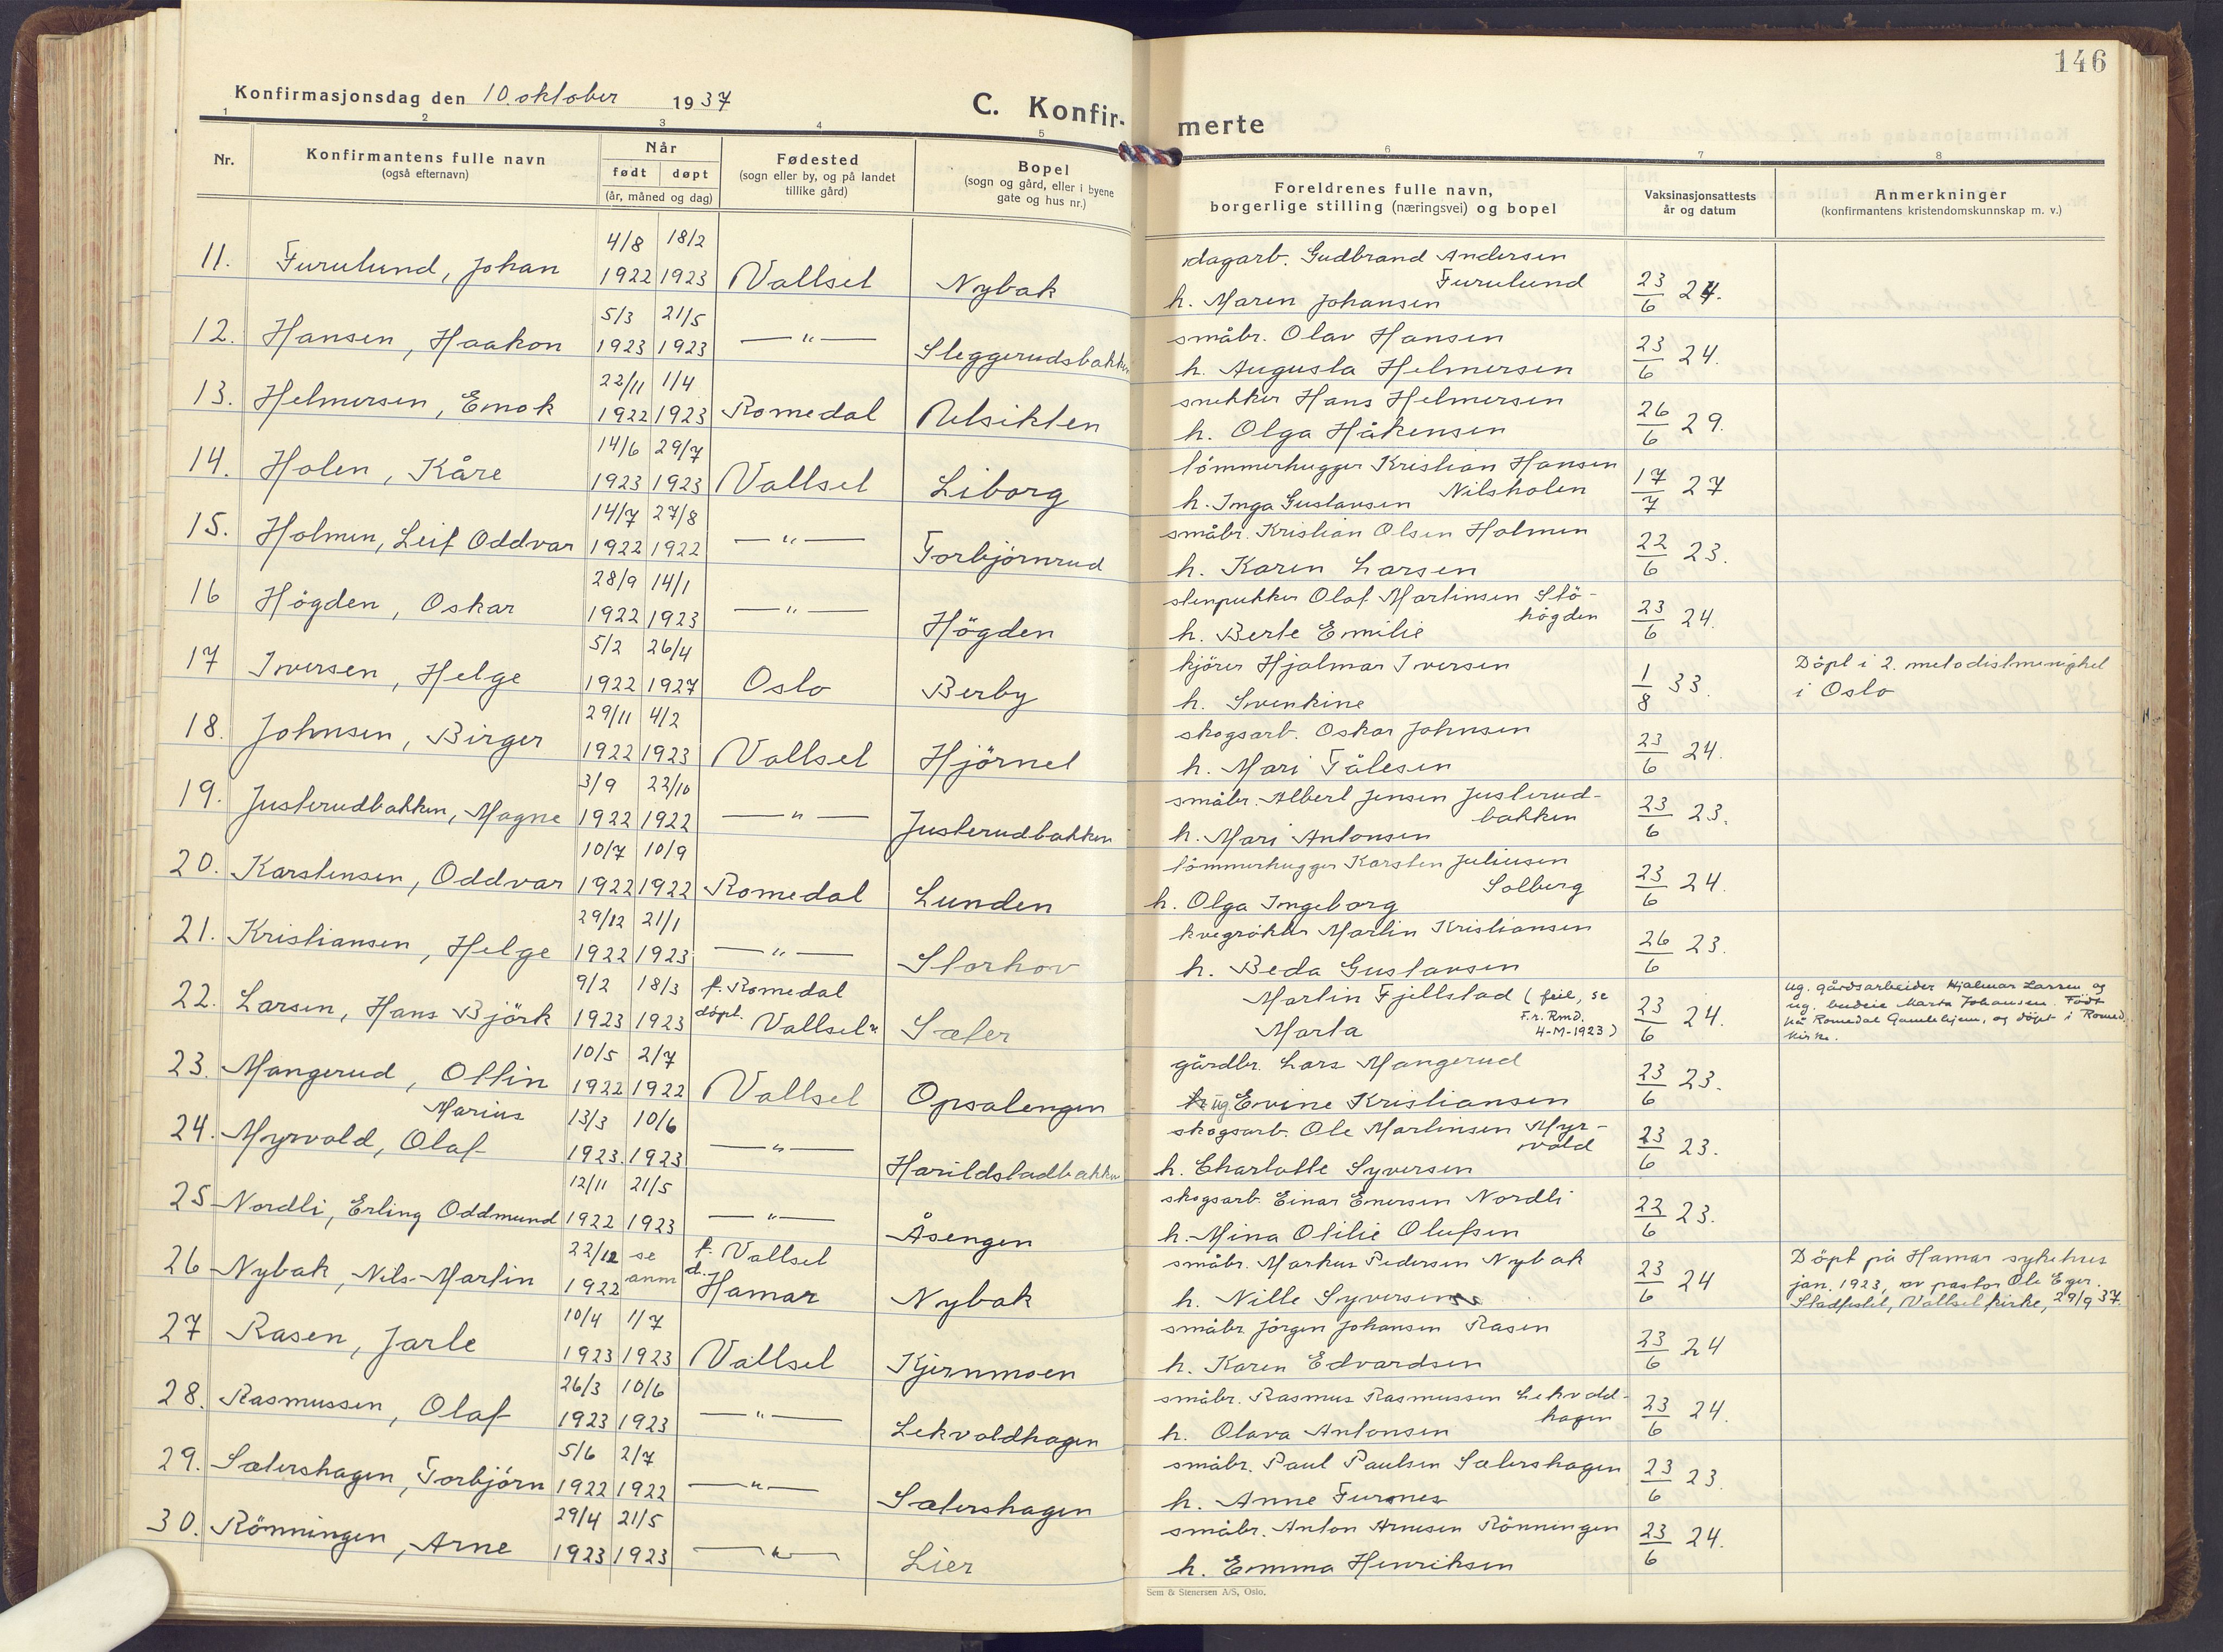 146
Konfirmasjonsdag den 10. oktober 1937
C. Konfir-
merte
1 2 3 4 5 6 7 8
Nr.
Konfirmantens fulle navn
(også efternavn)
Når
født døpt
(år, måned og dag)
Fødested
(sogn eller by, og på landet
tillike gård)
Bopel
(sogn og gård, eller i byene
gate og hus nr.)
Foreldrenes fulle navn,
borgerlige stilling (næringsvei) og bopel
Vaksinasjonsattests
år og datum
Anmerkninger
(konfirmantens kristendomskunnskap m. v.)
4/8 18/2 dagarb. Gudbrand Andersen
11. Furulund, Johan 1922 1923 Vallset Nybak Furulund 23/6 24.
h. Maren Johansen
5/3 21/5 småbr. Olav Hansen
12. Hansen, Haakon 1923 1923 —"— Sleggerudsbakken h. Augusta Helmersen 23/6 24.
22/11 1/4 snekker Hans Helmersen
13. Helmersen, Emok 1922 1923 Romedal Utsikten h. Olga Håkensen 26/6 29.
14/6 29/7 tömmerhugger Kristian Hansen
14. Holen, Kåre 1923 1923 Vallset Liborg Nilsholen 17/7 27
h. Inga Gustavsen
14/7 27/8 småbr. Kristian Olsen Holmen
15. Holmen, Leif Oddvar 1922 1922 —"— Torbjörnrud h. Karen Larsen 22/6 23.
28/9 14/1 stenpukker Olaf Martinsen Stö-
16 Högden, Oskar 1922 1923 —"— Högden högden 23/6 24.
h. Berte Emilie
5/2 26/4 kjörer Hjalmar Iversen Döpt i 2. metodistmenighet
17 Iversen, Helge 1922 1927 Oslo Berby h. Svenkine 1/8 33. i Oslo
29/11 4/2 skogsarb. Oskar Johnsen
18. Johnsen, Birger 1922 1923 Vallset Hjörnet h. Mari Tålesen 23/6 24.
3/9 22/10 småbr. Albert Jensen Justerud-
19. Justerudbakken, Magne 1922 1922 —"— Justerudbakken bakken 23/6 23.
h. Mari Antonsen
10/7 10/9 tömmerhugger Karsten Juliusen
20. Karstensen, Oddvar 1922 1922 Romedal Lunden Solberg 23/6 24.
h. Olga Ingeborg
29/12 21/1 kvegrökter Martin Kristiansen
21. Kristiansen, Helge 1922 1923 —"— Storhov h. Beda Gustavsen 26/6 23.
9/2 18/3 f. Romedal Martin Fjellstad (feil, se ug. gårdsarbeider Hjalmar Larsen og
22. Larsen, Hans Björk 1923 1923 döpt. Vallset" Sæter F.r. Rmd. 23/6 24. ug. budeie Marta Johansen. Født
Marta 4-M-1923) på Romedal Gamlehjem, og döpt i Romed.
kirke.
10/5 2/7 gårdbr. Lars Mangerud
23. Mangerud, Ottin 1922 1922 Vallset Opsalengen ug. Evine Kristiansen 23/6 23.
Marius 13/3 10/6 skogsarb. Ole Martinsen Myr-
24. Myrvold, Olaf 1923. 1923 —"— Harildstadbakken vold 23/6 23.
h. Charlotte Syversen
12/11 21/5 skogsarb. Einar Enersen Nordli
25 Nordli, Erling Oddmund 1922 1923 —"— Åsengen h. Mina Otilie Olufsen 22/6 23.
22/12 se f. Vallset småbr. Markus Pedersen Nybak Döpt på Hamar sykehus
26 Nybak, Nils-Martin 1922 anm d. Hamar Nybak h. Nille Syversen 23/6 24 jan. 1923, av pastor Ole Eger.
Stadfestet, Vallset kirke, 29/9 37.
10/4 1/7 småbr Jörgen Johansen Rasen
27 Rasen, Jarle 1923 1923 Vallset Kjernmoen h. Karen Edvardsen 23/6 24
26/3 10/6 småbr. Rasmus Rasmussen Lekvold-
28. Rasmussen, Olaf 1923 1923 —"— Lekvoldhagen hagen 23/6 24.
h. Olava Antonsen
5/6 2/7 småbr. Paul Paulsen Sætershagen
29. Sætershagen, Torbjörn 1922 1922 —"— Sætershagen h. Anne Furones 23/6 23.
29/4 21/5 småbr. Anton Arnesen Rönningen
30. Rönningen, Arne 1923 1923 —"— Lier h. Emma Henriksen 23/6 24.
Sem & Stenersen A/S, Oslo.